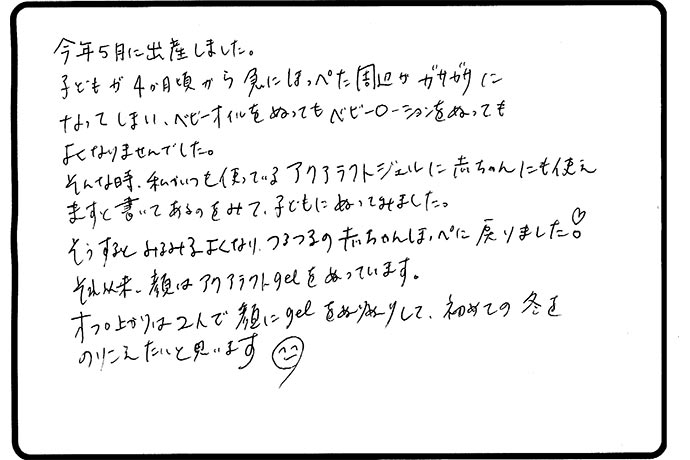 今年5月に出産しました。
子どもが4か月頃から急にほっぺた周辺がガサガサに
なってしまい、ベビーオイルをぬってもベビーローションをぬっても
よくなりませんでした。
そんな時、私がいつも使っているアクアラフトジェルに赤ちゃんにも使え
ますと書いてあるのをみて、子どもにぬってみました。
そうするとみるみるよくなり、つるつるの赤ちゃんほっぺに戻りました♡
それ以来、顔はアクアラフトgelをぬっています。
オフロ上がりは2人で顔にgelをぬりぬりして、初めての冬を
のりこえたいと思います